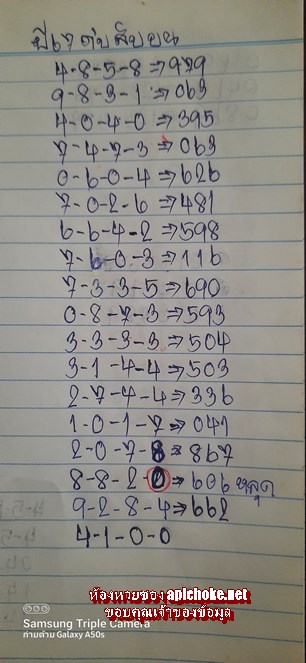 ปี67 ดับสิบบน
4-8-5-8⇒979
9-8-3-1⇒063
4-0-4-0⇒395
7-4-7-3⇒063
0-6-0-4⇒626
7-0-2-6⇒481
6-6-4-2⇒598
7-6-0-3⇒116
7-3-3-5⇒690
0-8-7-3⇒593
3-3-3-3⇒504
3-1-4-4⇒503
2-7-4-4⇒336
1-0-1-7⇒041
2-0-7-8⇒867
8-8-2-0⇒636 หลุด
9-2-8-4⇒662
4-1-0-0
ห้องหวยซอง apichoke.net
ขอบคุณเจ้าของข้อมูล
Samsung Triple Camera
ถ่ายด้วย Galaxy A50s